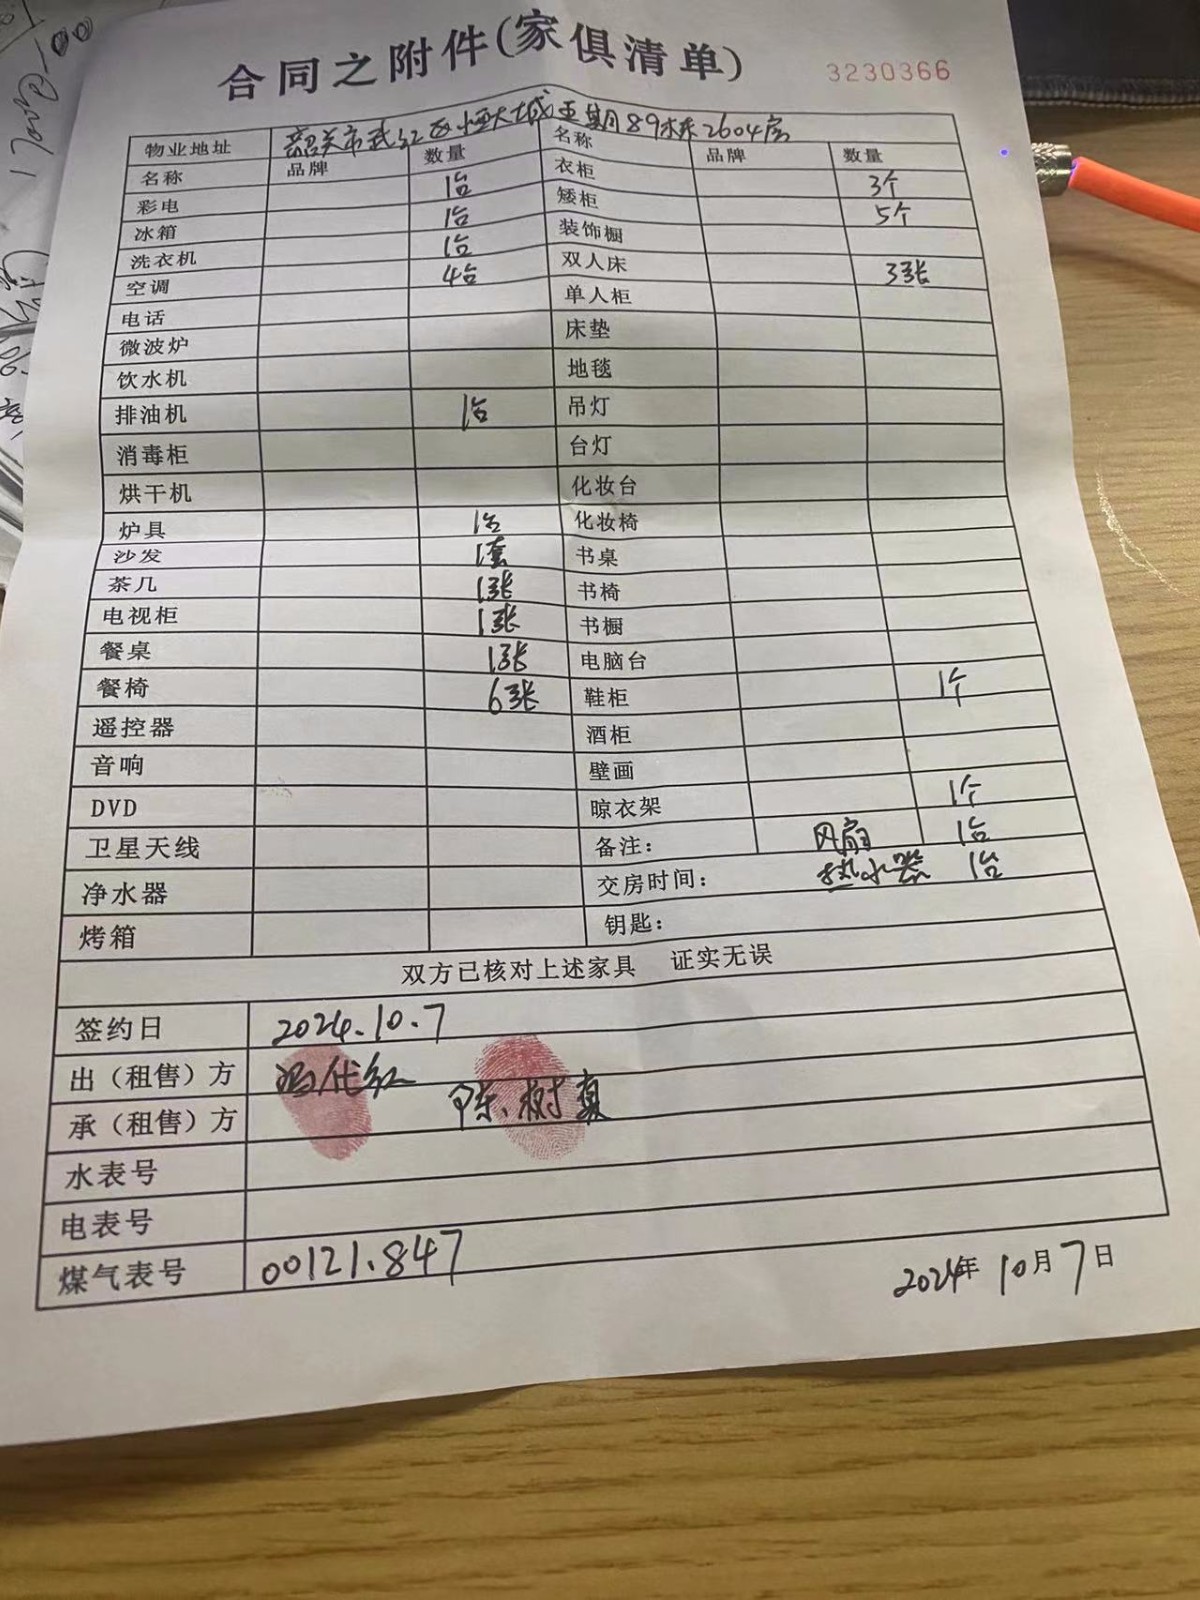 合同之附件(家俱清单)
3230366
物业地址 韶关市武江区恒大城五期89栋2604房
名称 品牌 数量 名称 品牌 数量
彩电 1台 衣柜 3个
冰箱 1台 矮柜 5个
洗衣机 1台 装饰橱
空调 4台 双人床 3张
电话 单人柜
微波炉 床垫
饮水机 地毯
排油机 1台 吊灯
消毒柜 台灯
烘干机 化妆台
炉具 1台 化妆椅
沙发 1套 书桌
茶几 1张 书椅
电视柜 1张 书橱
餐桌 1张 电脑台
餐椅 6张 鞋柜 1个
遥控器 酒柜
音响 壁画
DVD 晾衣架 1个
卫星天线 备注： 风扇 1台
净水器 交房时间： 热水器 1台
烤箱 钥匙：
双方已核对上述家具 证实无误
签约日 2024.10.7
出（租售）方 冯代红
承（租售）方 陈树真
水表号
电表号
煤气表号 00121.847
2024年 10月7日